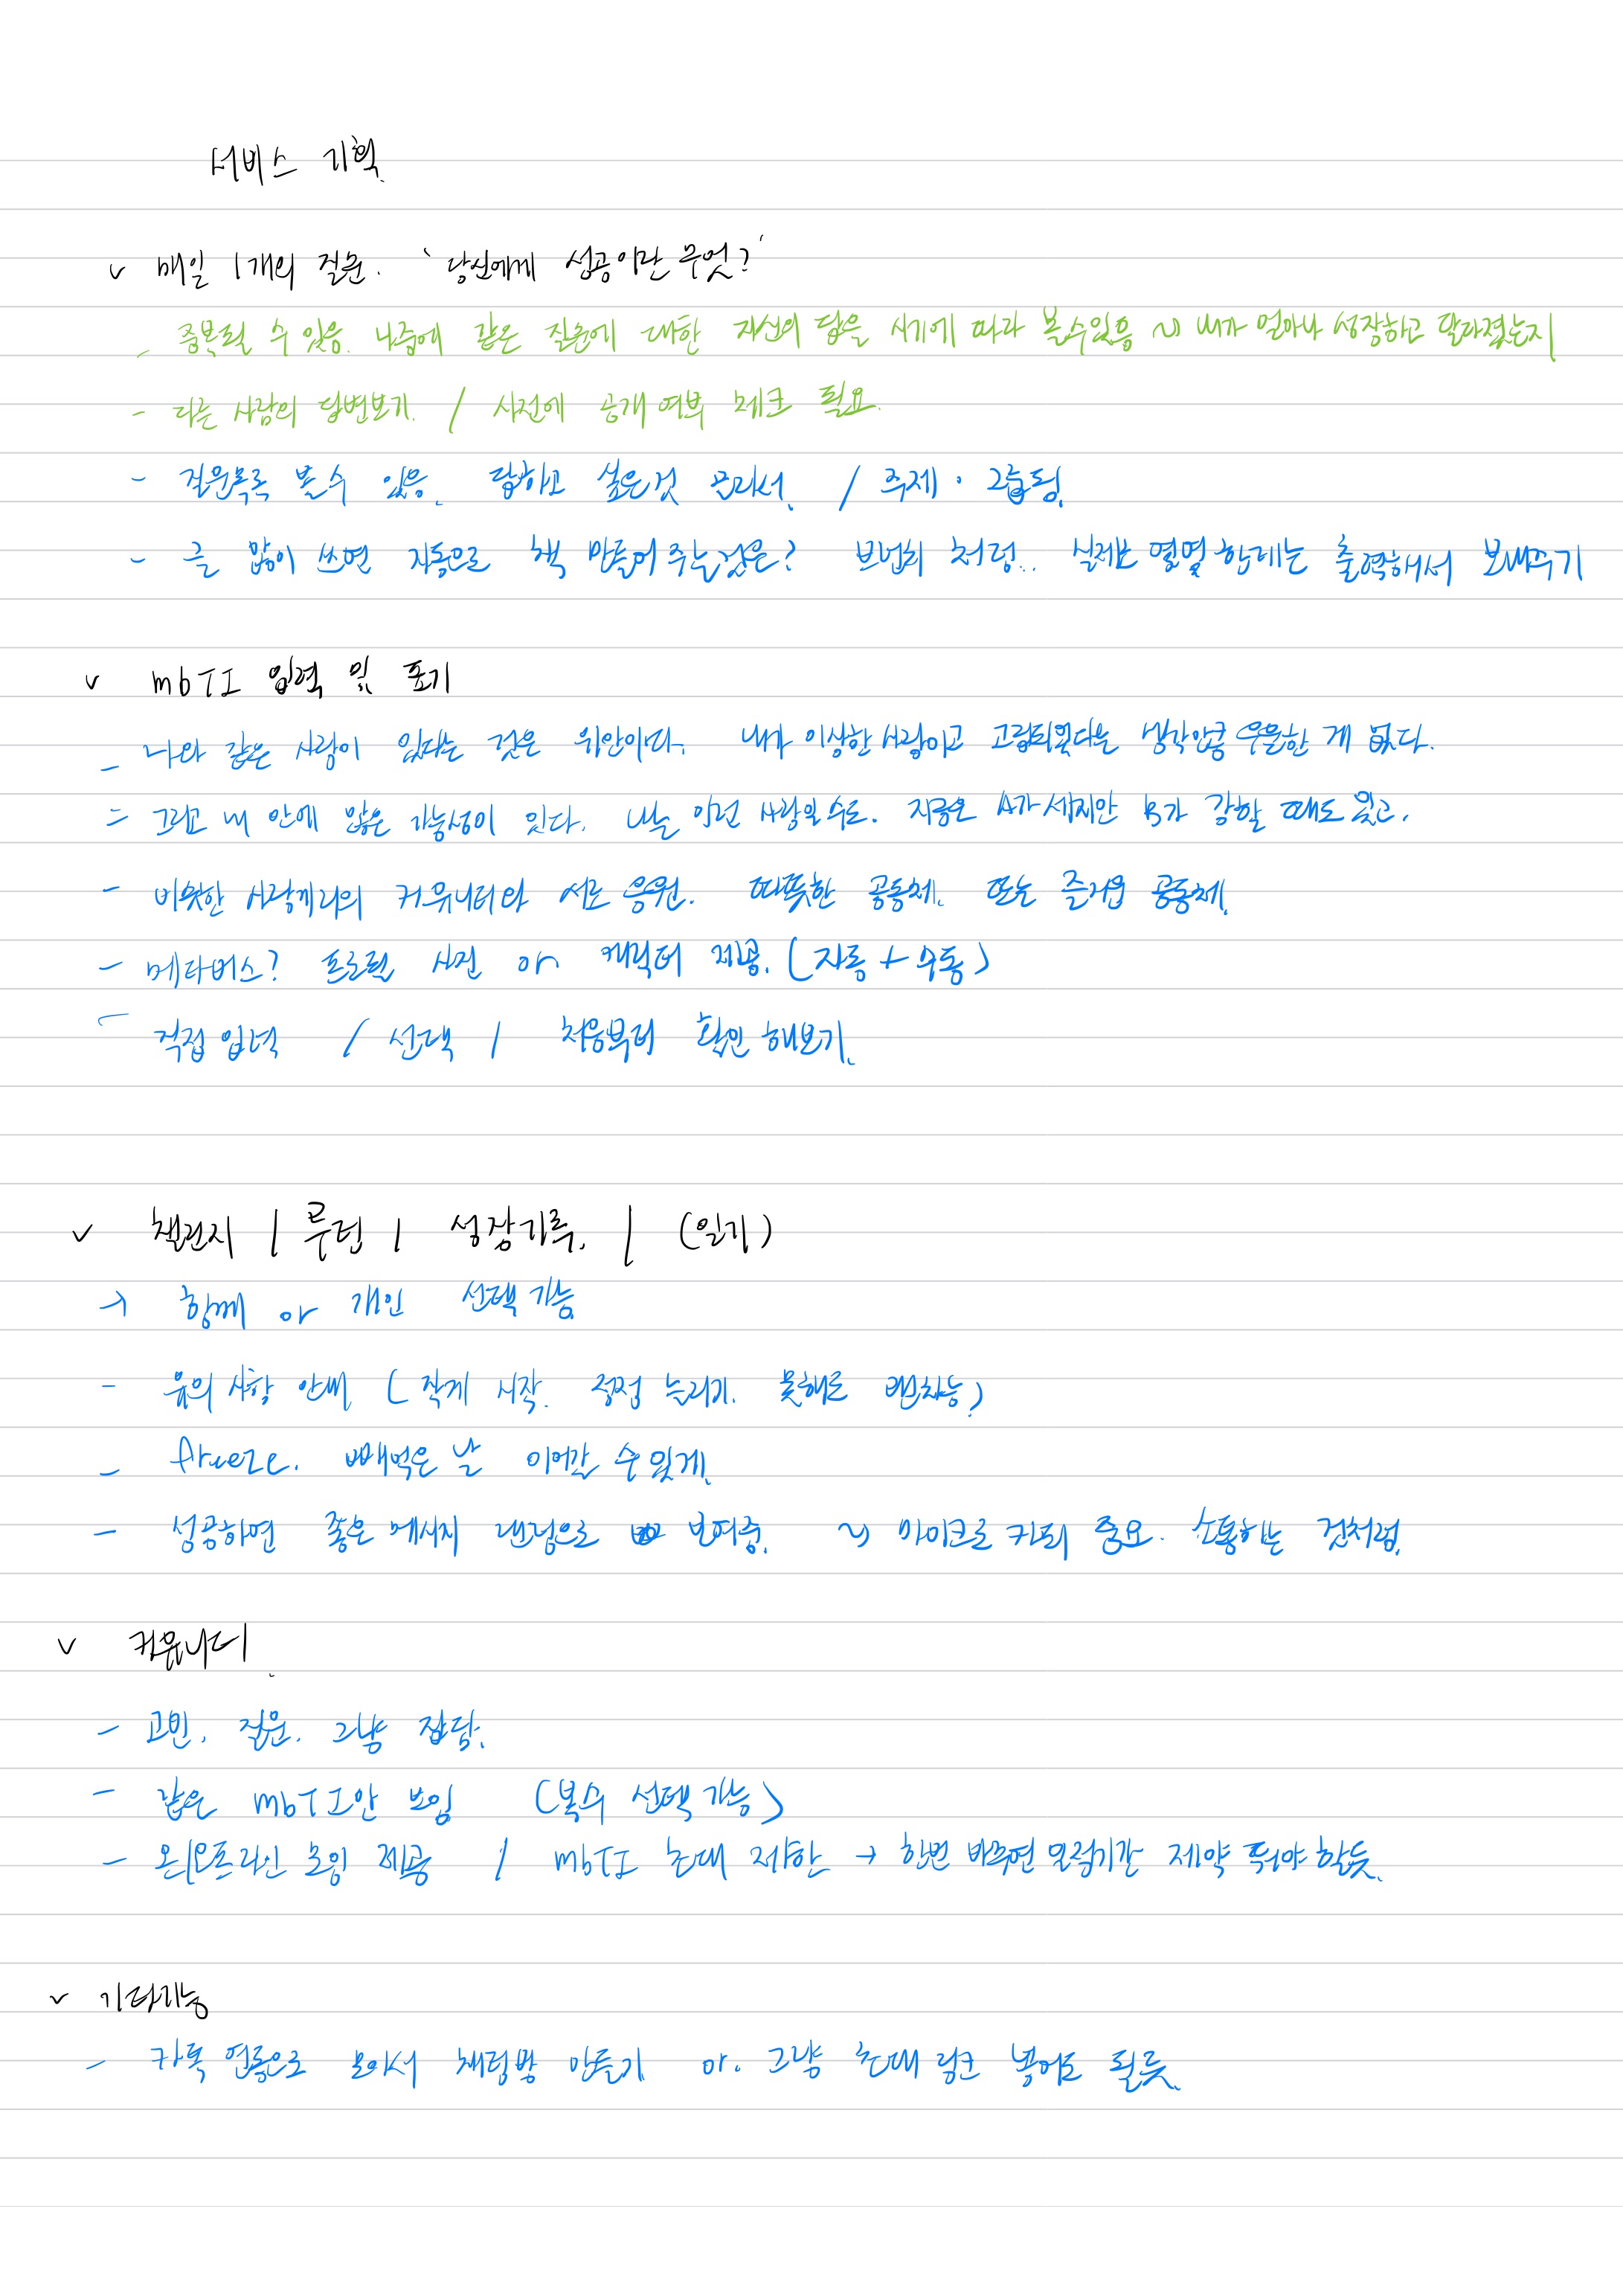 서비스 기획.
v 매일 1개의 질문. '당신에게 성공이란 무엇?'
- 중복될 수 있음. 나중에 같은 질문에 대한 자신의 답을 시기에 따라 볼수있음 ~> 내가 얼마나 성장하고 달라졌는지
- 다른 사람의 답변보기. / 사전에 공개여부 체크 필요.
- 질문목록 볼 수 있음. 답하고 싶은것 골라서. / 주제 · 그룹핑.
- 글 많이 쓰면 자동으로 책 만들어 주는것은? 브런치 처럼.. 실제로 열열 한테는 출력해서 보내주기
v mbTI 입력 및 표기
- 나와 같은 사람이 있다는 것은 위안이다. 내가 이상한 사람이고 고립되었다는 생각만큼 우울한 게 없다.
- 그리고 내 안에 많은 가능성이 있다. 나는 이런 사람일 수도. 지금은 A가 세지만 B가 강할 때도 있고.
- 비슷한 사람끼리의 커뮤니티와 서로 응원. 따뜻한 공동체. 또는 즐거운 공동체.
- 메타버스? 프로필 사진 or 캐릭터 제공. (자동 + 수동)
- 직접 입력 / 선택 / 처음부터 확인 해보기.
v 챌린지 / 루틴 / 성장기록. / (일기)
→ 함께 or 개인 선택 가능
- 유의 사항 안내 (작게 시작. 점점 늘리기. 못해도 괜차능)
- freeze. 빼먹은 날 이어갈 수 있게.
- 성공하면 좋은 메시지 랜덤으로 보여줌. ~> 마이크로 카피 중요. 소통하는 것처럼.
v 커뮤니티.
- 고민. 질문. 그냥 잡담.
- 같은 mbTI만 보임 (복수 선택 가능)
- 온/오프라인 모임 제공 / mbTI 초대 제한 → 한번 바꾸면 일정기간 제약 둬야 할듯.
v 기타기능
- 카톡 연동으로 모아서 채팅방 만들기 or. 그냥 초대 링크 넣어도 될듯.